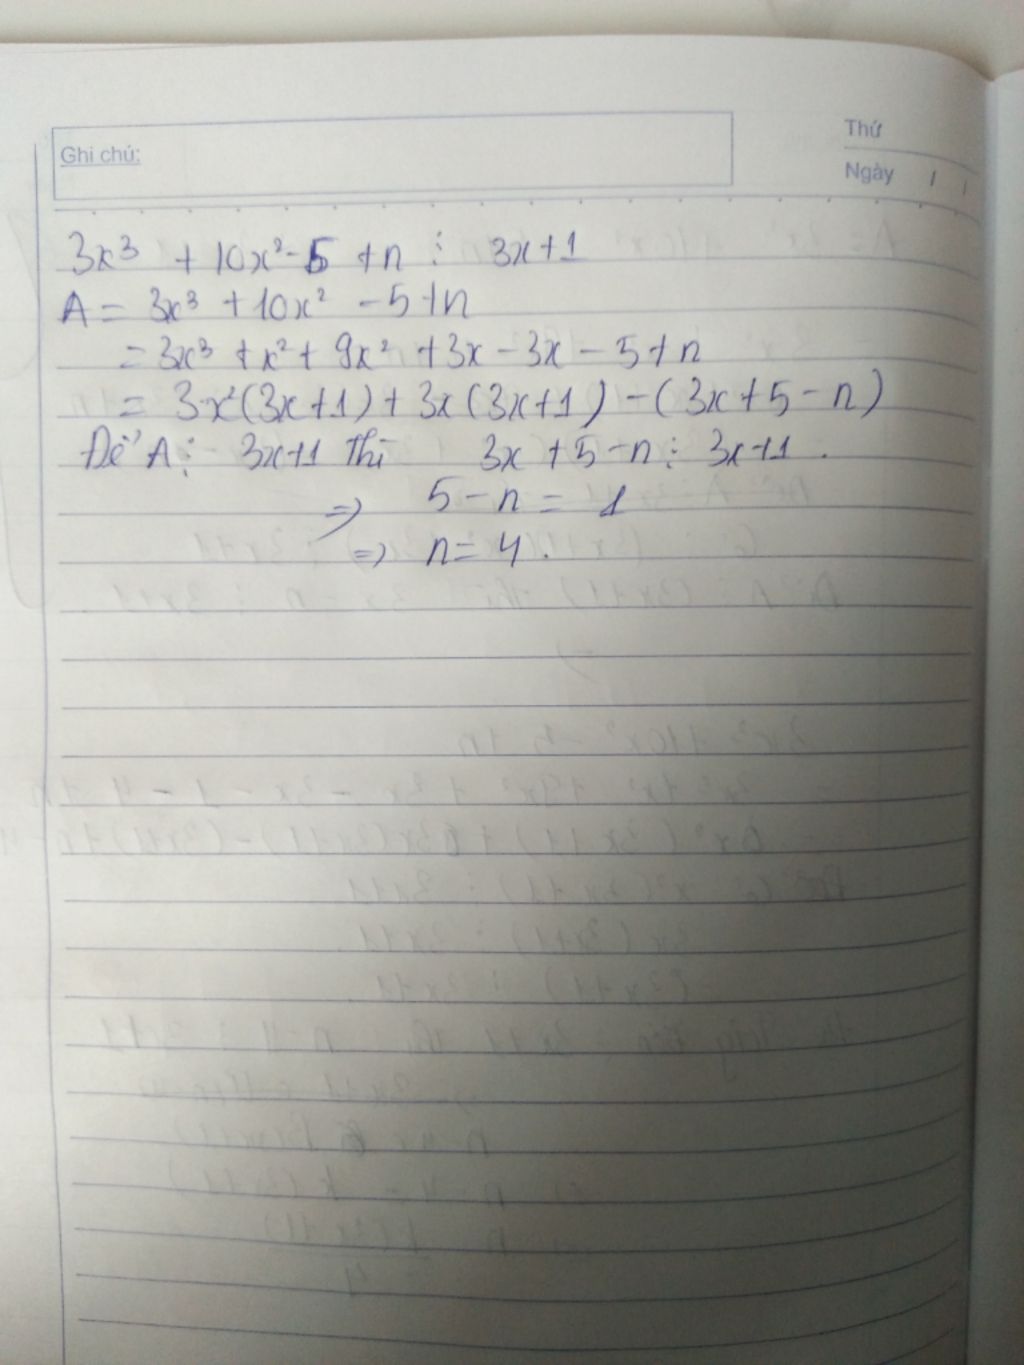 Ghi chú:
Thứ
Ngày / /
3x³ + 10x² - 5 + n ⋮ 3x+1
A = 3x³ + 10x² - 5 + n
= 3x³ + x² + 9x² + 3x - 3x - 5 + n
= 3x²(3x+1) + 3x(3x+1) - (3x+5-n)
Để A ⋮ 3x+1 thì 3x + 5 - n ⋮ 3x+1.
=> 5 - n = 1
=> n = 4.